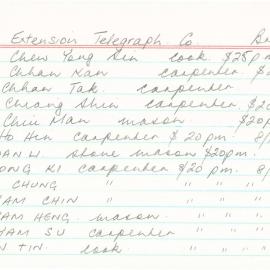 Extension Telegraph Co.
Chew Yong Sin cook $25pm
Chhan Kan carpenter
Chhan Tak carpenter
Cheong Shin carpenter $20
Chiu Man mason $20p
Ho Hin carpenter $20 pm. 8/
AN LI. stone mason $20pm.
ONG KI carpenter $20 pm. 8/
CHUNG " " " "
AM CHIN " " " "
AM HENG. mason " " "
HAM SU carpenter " " "
N TIN. cook " "